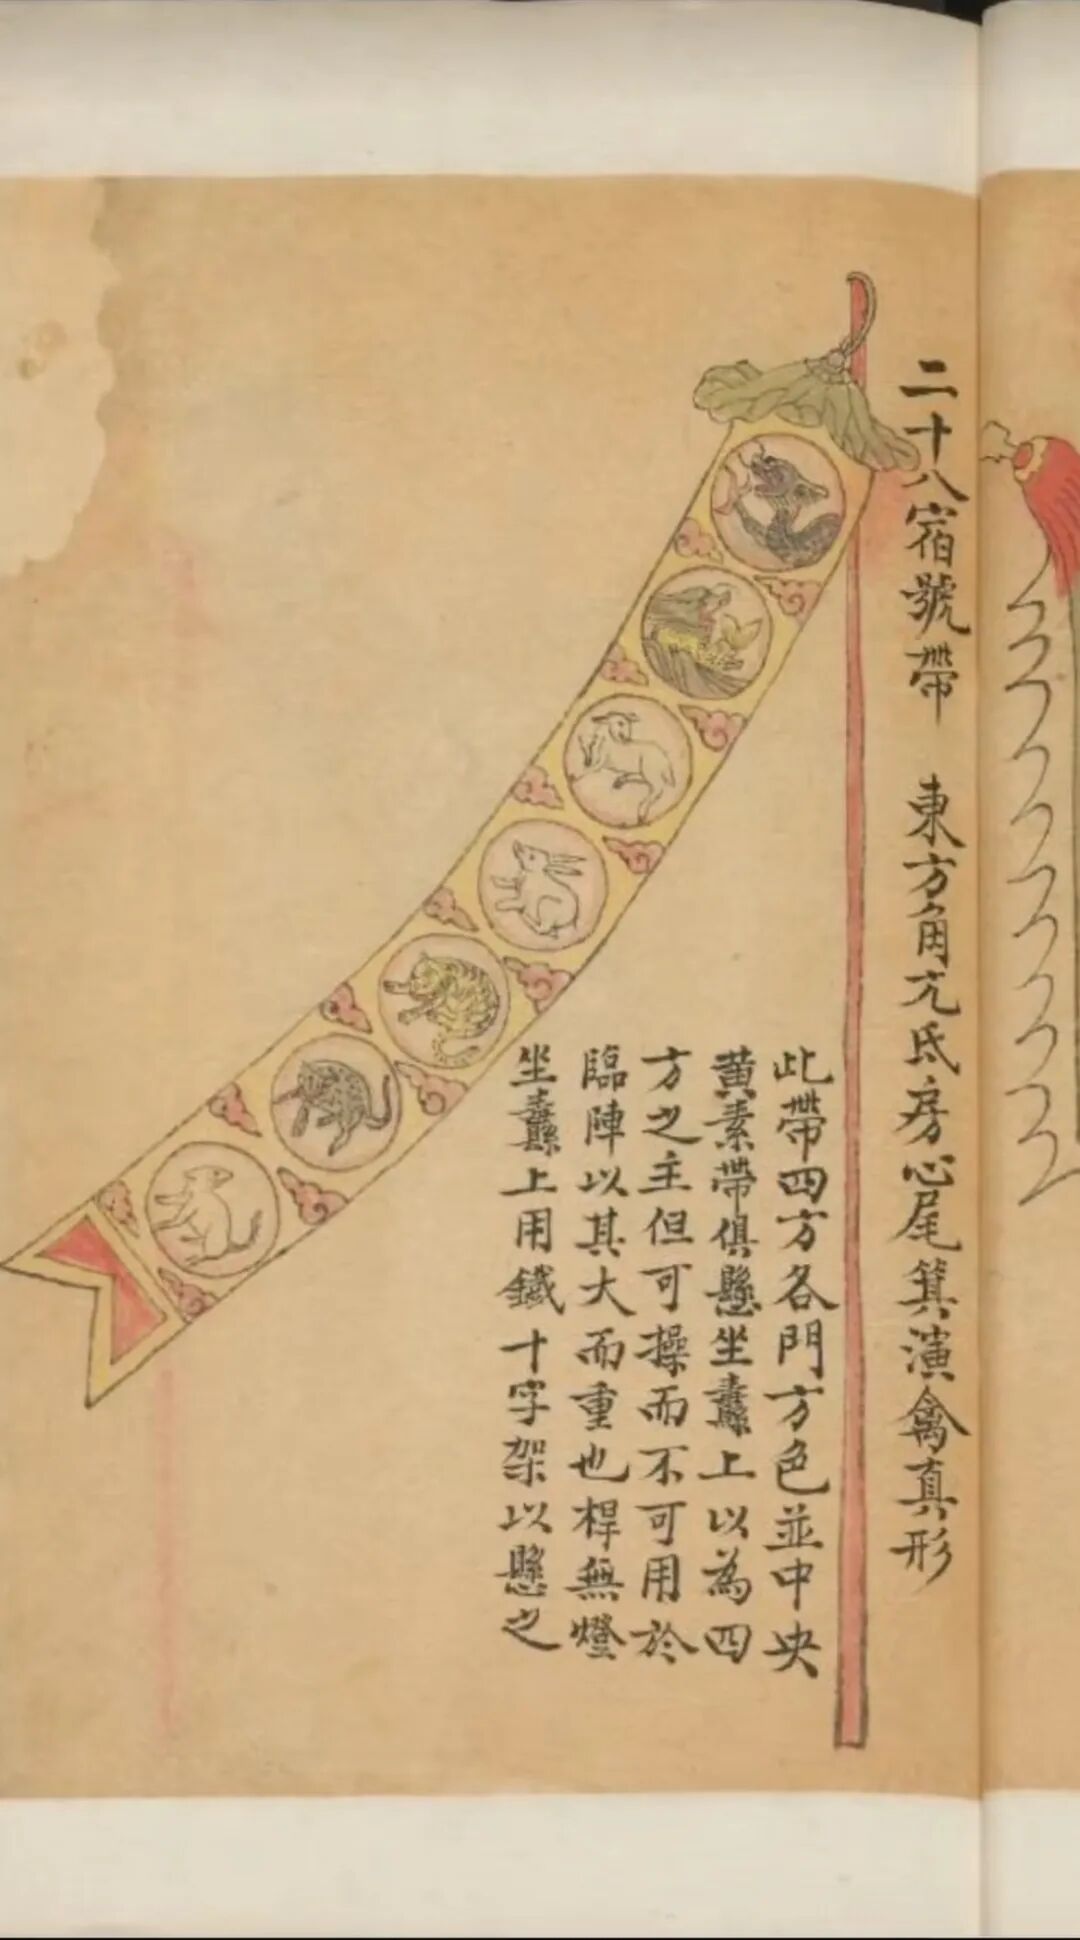 二十八宿號帶　東方角亢氐房心尾箕演禽真形
此帶四方各門方色並中央
黃素帶俱懸坐纛上以為四
方之主但可操而不可用於
臨陣以其大而重也桿無燈
坐纛上用鐵十字架以懸之